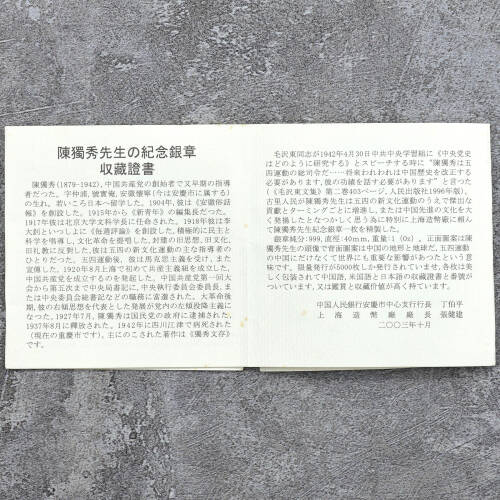 陳獨秀先生の紀念銀章
収藏證書
陳獨秀(1879-1942)、中国共産党の創始者で又早期の指導
者だった。字仲甫、號實庵、安徽懷寧(今は安慶市に属する)
の生れ。若いころ日本へ留学した。1904年、彼は《安徽俗話
報》を創設した。1915年から《新青年》の編集長だった。
1917年は北京大学文科学長に任命された。1918年彼は李
大釗といっしよに《毎週評論》を創設した。積極的に民主
と科学を唱導し、文化革命を提唱した。封建の旧思想、旧文化、
旧礼教に反対した。彼は五四の新文化運動の主な指導者の
ひとりだった。五四運動後、彼は馬克思主義を受け、また
宣傳した。1920年8月上海で初めて共産主義組を成立した。
中国共産党を成立するのを発起した。中国共産党第一回大
会から第五次まで中央局書記に、中央執行委員会委員長、ま
たは中央委員会総書記などの職務に當選された。大革命後
期、彼の右傾思想を代表とした発展が党内の左傾投降主義に
なった。1927年7月、陳獨秀は国民党の政府に逮捕された。
1937年8月に釋放された。1942年に四川江津で病死された
(現在の重慶市です)。主にのこされた著作は《獨秀文存》
です。
毛沢東同志が1942年4月30日中共中央学習組に《中央党史
はどのように研究する》とスピーチする時に"陳獨秀は五
四運動の総司令だ……将来われわれは中国歴史を改正する
必要があります。彼の功績を話す必要があります"と语った
(《毛沢東文集》第二巻403ページ、人民出版社1996年版)。
古里人民が陳獨秀先生は五四の新文化運動のうえで傑出な
貢獻とターミングどこに增進し、または中国先進の文化を大
發揚したとなつかしく思う為に特別に上海造幣廠に頼ん
て陳獨秀先生紀念銀章一枚を精製した。
銀章純分:999、直徑:40mm、重量:1(Oz)。正面圖案は陳
獨秀先生の頭像で背面圖案は中国の地形と地球だ。五四運動
の中国にだけなくて世界にも重要な影響があったという意
味です。限量発行が5000枚しか発行されています。各枚は美
しく包装されて中国語、米国語と日本語の収藏證書と番號が
ついています。又は鑑賞と収藏価値が高く持ています。
中国人民銀行安慶市中心支行行長 丁伯平
上海造幣廠廠長 張健建
二〇〇三年十月